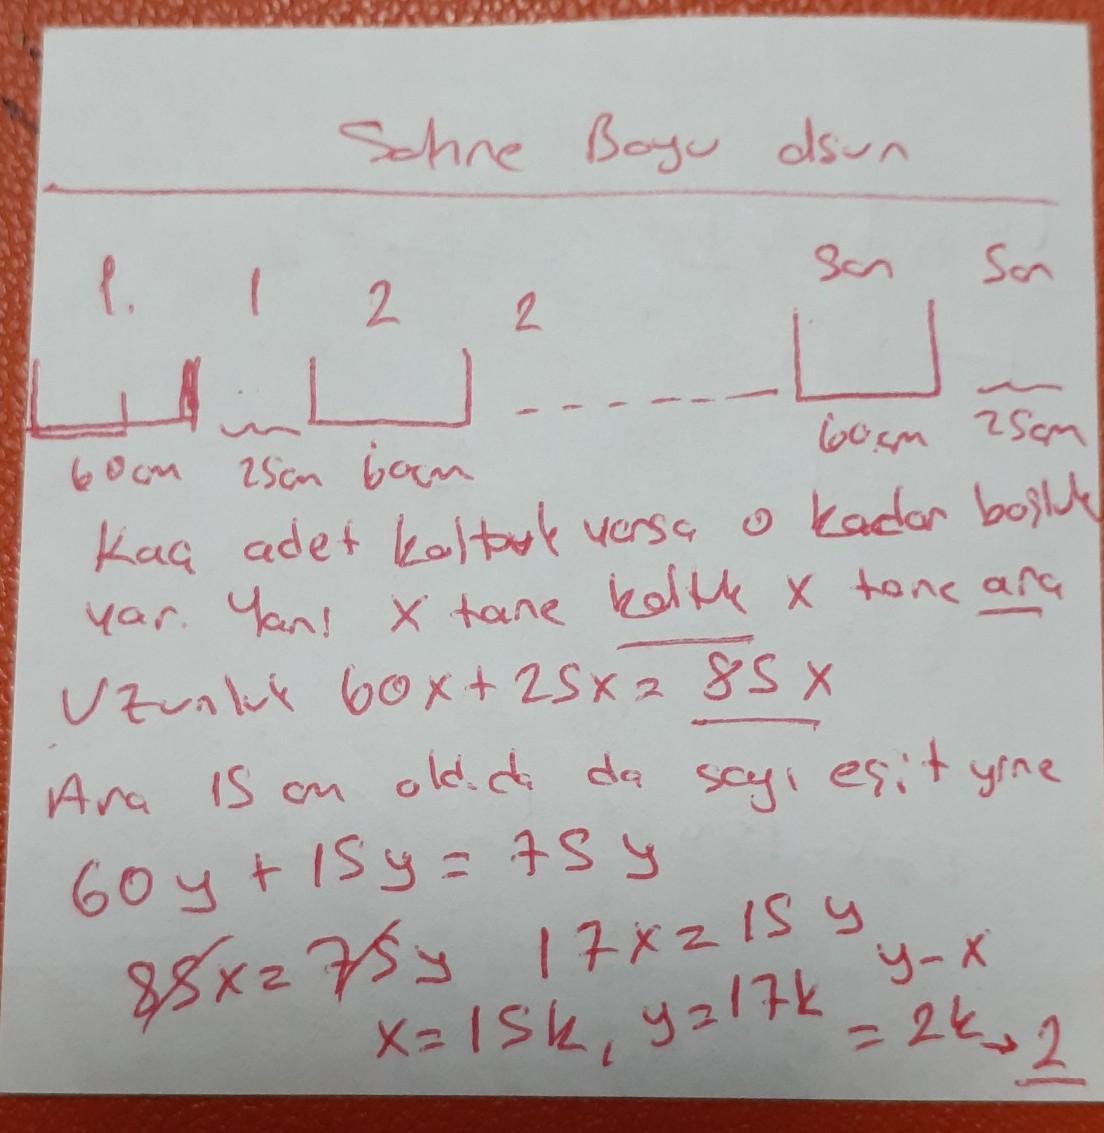 Sahne Boyu olsun
1. 1 2 2 Son Son
60cm 25cm 60cm 60cm 25cm
Kaç adet koltuk varsa o kadar boşluk
var. Yani x tane koltuk x tane ara
Uzunluk 60x+25x= 85x
Ara 15 cm old.da da sayı eşit yine
60y + 15y = 75y
85x= 75y 17x=15y y-x
x=15k, y=17k = 2k→2